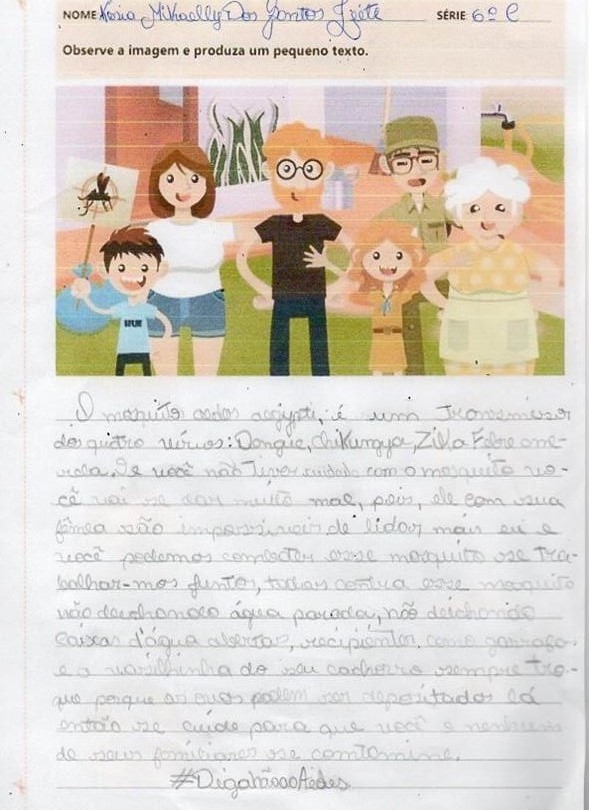 NOME Mikaelly Dos Santos SÉRIE 6º C
Observe a imagem e produza um pequeno texto.
O mosquito aedes aegypti, é um transmissor
dos quatro vírus: Dengue, Chikungya, Zika Febre ama-
rela. Se você não tiver cuidado com o mosquito vo-
cê vai se dar muito mal, pois, ele com sua
fêmea são impossíveis de lidar mais eu e
você podemos combater esse mosquito se tra-
balhar-mos juntos, todos contra esse mosquito
não deichando água parada, não deichando
caixas d'água abertas, recipientes como garrafas
e a vasilhinha do seu cachorro sempre tro-
que porque os ovos podem ser depositados lá
então se cuide para que você e nenhum
de seus familiares se contamine.
#DigaNãoaoAedes